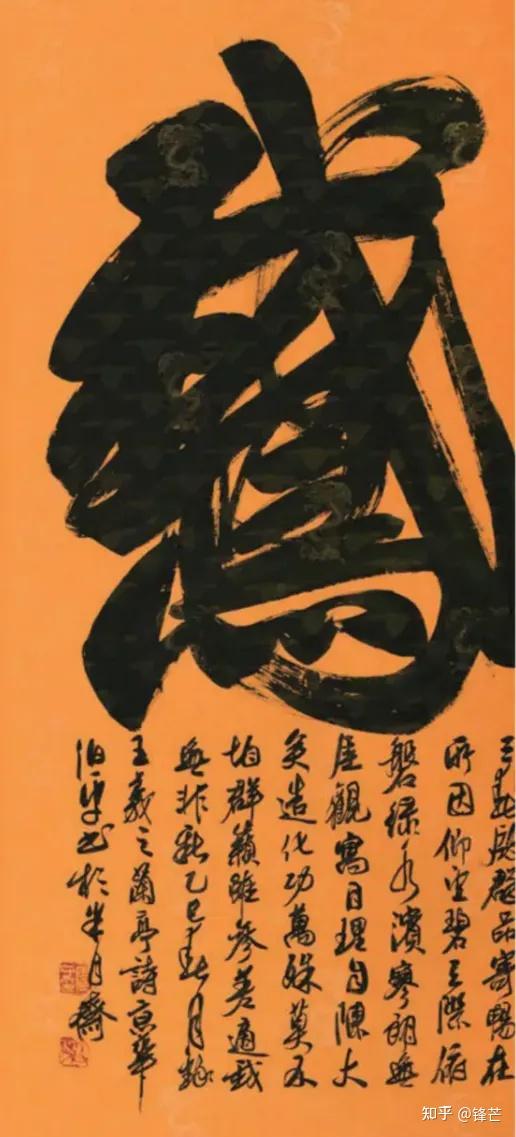 鵞
三春啟群品寄暢在
所因仰望碧天際俯
磐綠水濱寥朗無
厓觀寓目理自陳大
矣造化功萬殊莫不
均群籟雖參差適我
無非新乙巳春月錄
王羲之蘭亭詩京華
伯平书於半月齋
知乎 @锋芒